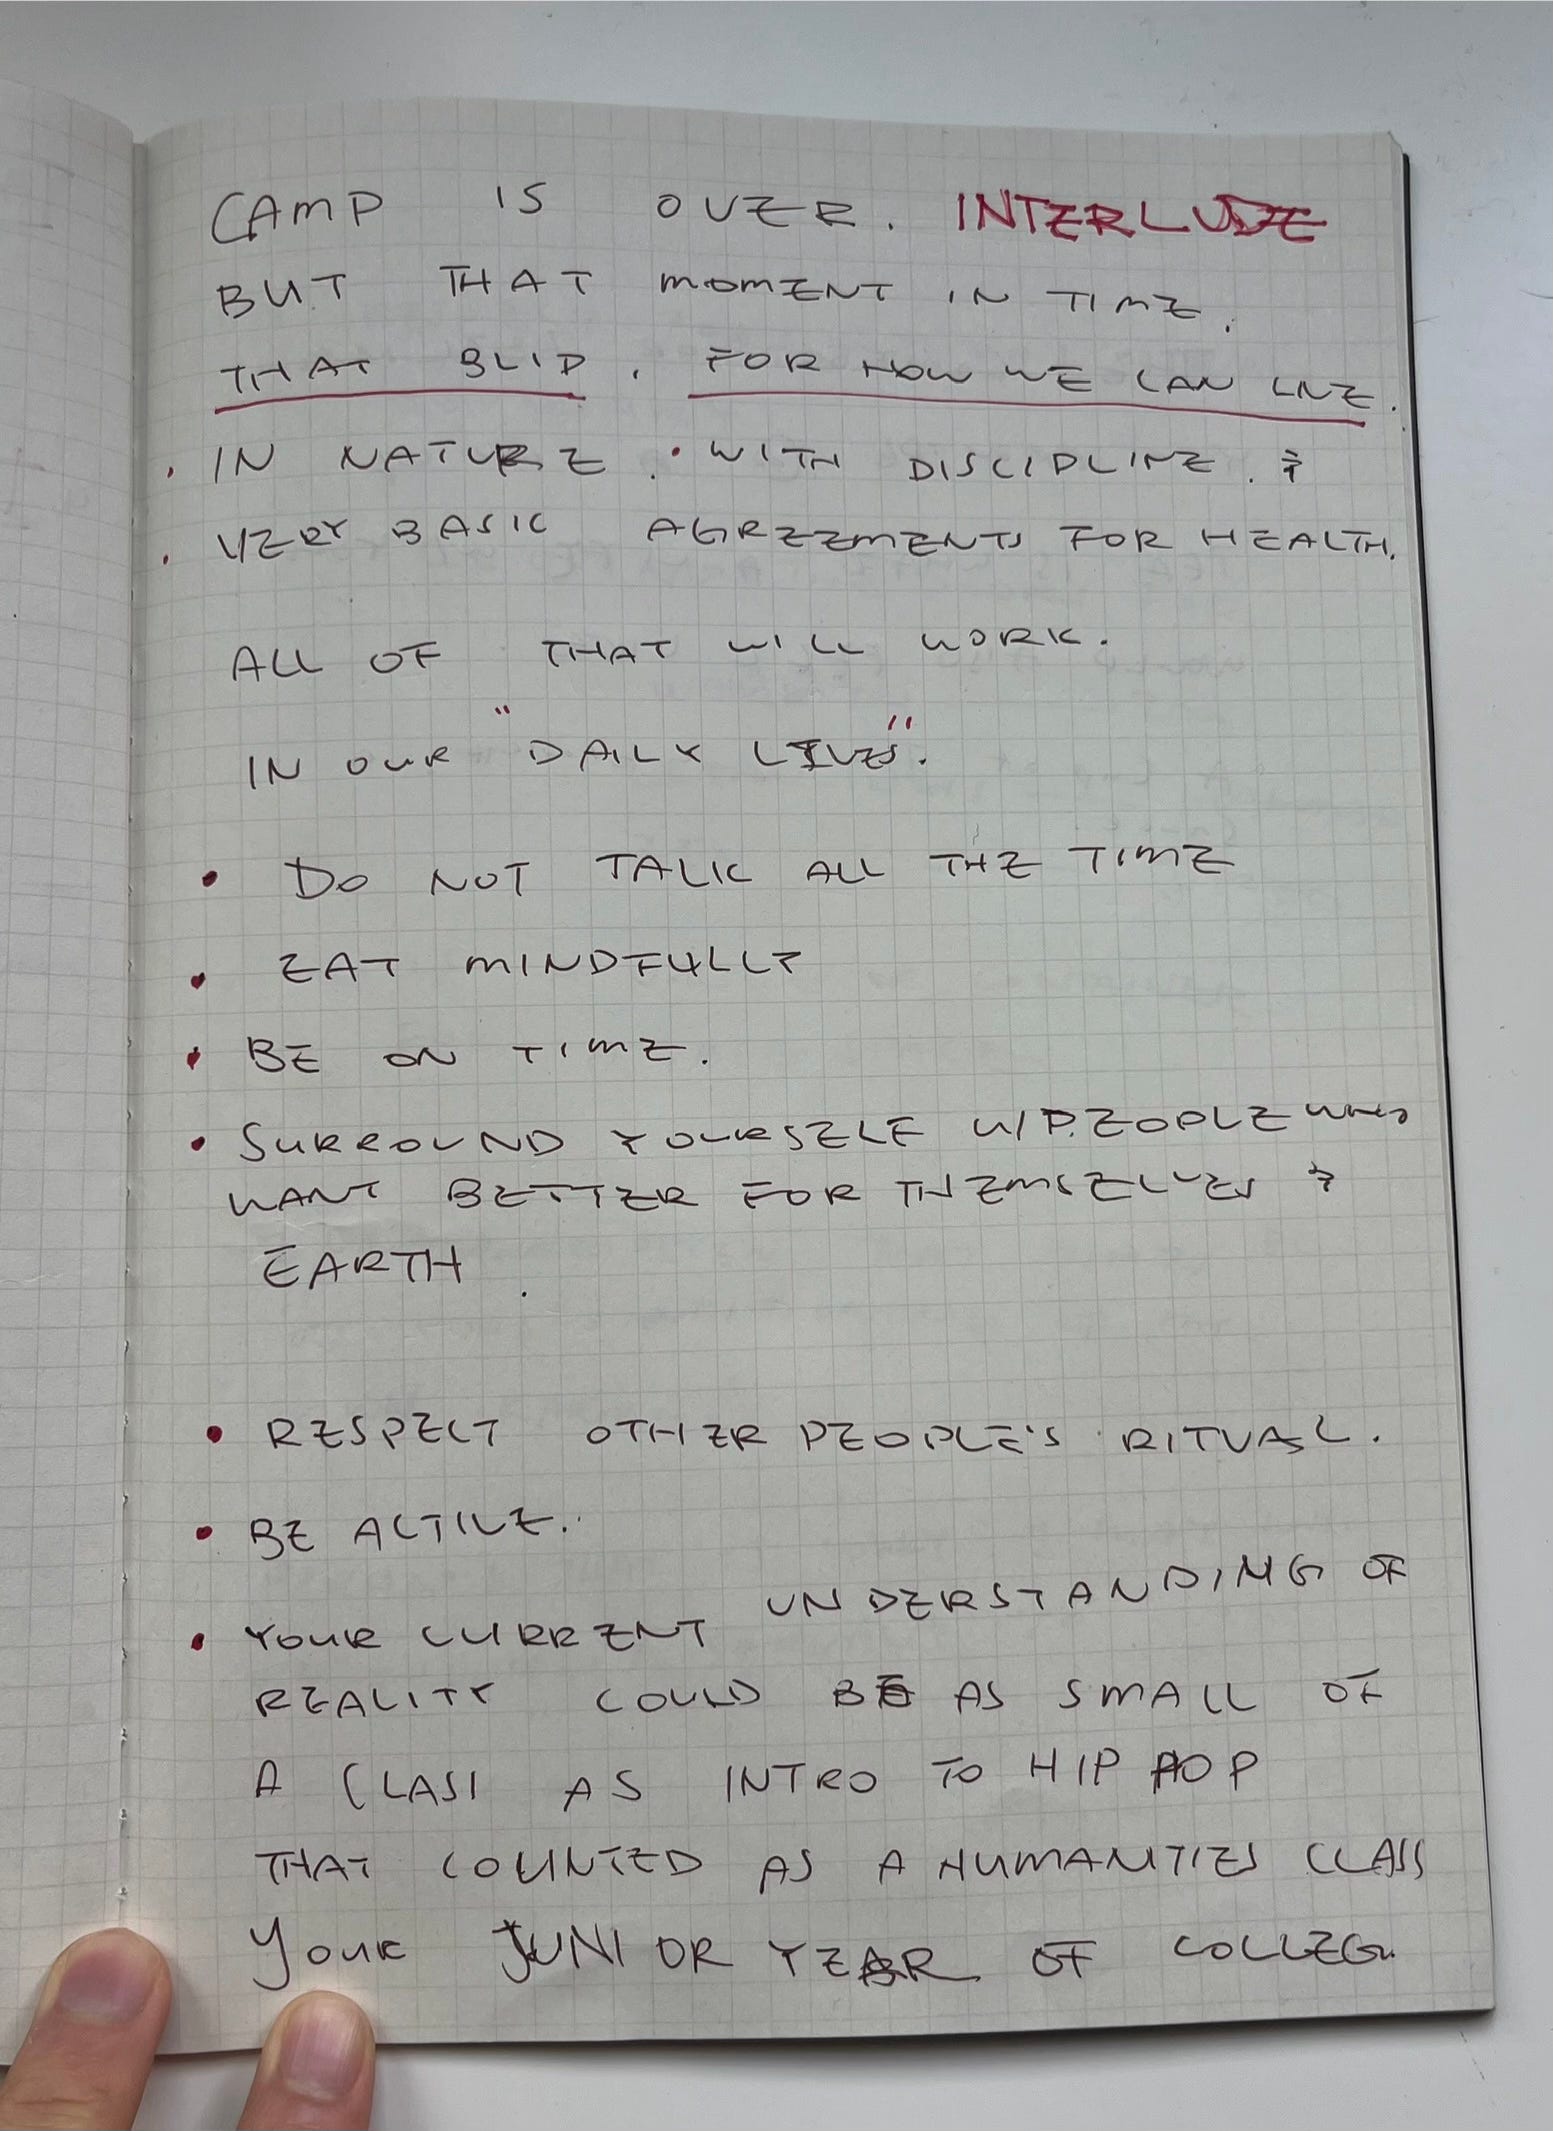 CAMP IS OVER. INTERLUDE
BUT THAT MOMENT IN TIME.
THAT BLIP. FOR HOW WE CAN LIVE.
• IN NATURE. • WITH DISCIPLINE. &
• VERY BASIC AGREEMENTS FOR HEALTH.
ALL OF THAT WILL WORK.
IN OUR "DAILY LIVES".
• DO NOT TALK ALL THE TIME
• EAT MINDFULLY
• BE ON TIME.
• SURROUND YOURSELF W/PEOPLE WHO
WANT BETTER FOR THEMSELVES &
EARTH.
• RESPECT OTHER PEOPLE'S RITUAL.
• BE ACTIVE.
• YOUR CURRENT UNDERSTANDING OF
REALITY COULD BE AS SMALL OF
A CLASS AS INTRO TO HIP HOP
THAT COUNTED AS A HUMANITIES CLASS
YOUR JUNIOR YEAR OF COLLEGE.